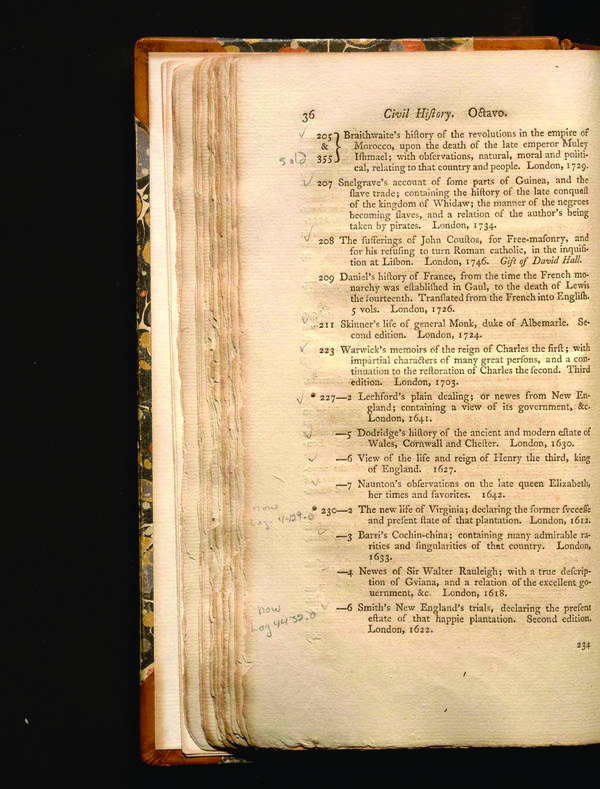 36 Civil Hiſtory. Octavo.
205 Braithwaite's hiſtory of the revolutions in the empire of
& Morocco, upon the death of the late emperor Muley
sold 355 Iſhmael; with obſervations, natural, moral and politi-
cal, relating to that country and people. London, 1729.
207 Snelgrave's account of ſome parts of Guinea, and the
ſlave trade; containing the hiſtory of the late conqueſt
of the kingdom of Whidaw; the manner of the negroes
becoming ſlaves, and a relation of the author's being
taken by pirates. London, 1734.
208 The ſufferings of John Couſtos, for Free-maſonry, and
for his refuſing to turn Roman catholic, in the inquiſi-
tion at Liſbon. London, 1746. Gift of David Hall.
209 Daniel's hiſtory of France, from the time the French mo-
narchy was eſtabliſhed in Gaul, to the death of Lewis
the fourteenth. Tranſlated from the French into Engliſh.
5 vols. London, 1726.
211 Skinner's life of general Monk, duke of Albemarle. Se-
cond edition. London, 1724.
223 Warwick's memoirs of the reign of Charles the firſt; with
impartial characters of many great perſons, and a con-
tinuation to the reſtoration of Charles the ſecond. Third
edition. London, 1703.
* 227—2 Lechford's plain dealing; or newes from New En-
gland; containing a view of its government, &c.
London, 1641.
—5 Dodridge's hiſtory of the ancient and modern eſtate of
Wales, Cornwall and Cheſter. London, 1630.
—6 View of the life and reign of Henry the third, king
of England. 1627.
—7 Naunton's obſervations on the late queen Elizabeth,
her times and favorites. 1642.
now
* 230—2 The new life of Virginia; declaring the former ſvcceſſe
and preſent ſtate of that plantation. London, 1612.
—3 Barri's Cochin-china; containing many admirable ra-
rities and ſingularities of that country. London,
1633.
—4 Newes of Sir Walter Rauleigh; with a true deſcrip-
tion of Gviana, and a relation of the excellent go-
uernment, &c. London, 1618.
now
Log 4432.O
—6 Smith's New England's trials, declaring the preſent
eſtate of that happie plantation. Second edition.
London, 1622.
234